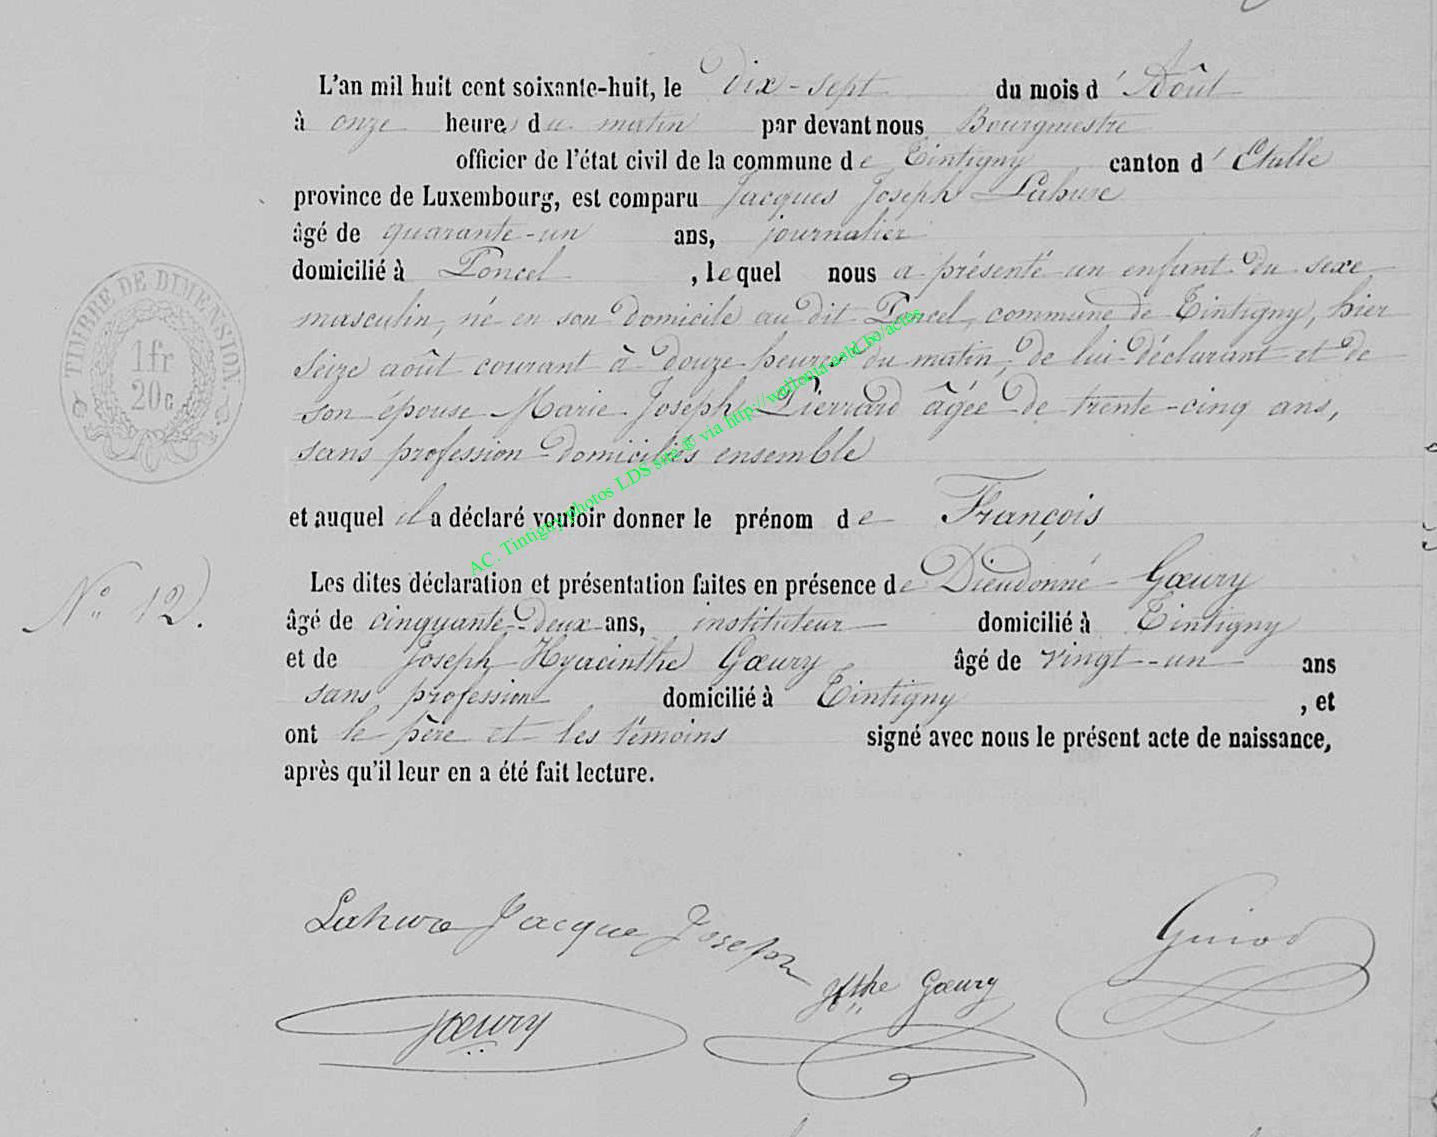 L'an mil huit cent soixante-huit, le Dix-sept du mois d'Août
à onze heures du matin par devant nous Bourgmestre
officier de l'état civil de la commune de Tintigny canton d'Etalle
province de Luxembourg, est comparu Jacques Joseph Lahure
âgé de quarante-un ans, journalier
domicilié à Poncel, lequel nous a présenté un enfant du sexe
masculin, né en son domicile au dit Poncel, commune de Tintigny, hier
seize août courant à douze heures du matin, de lui déclarant et de
son épouse Marie Joseph Pierrard âgée de trente-cinq ans,
sans profession domiciliés ensemble
et auquel il a déclaré vouloir donner le prénom de François
Les dites déclaration et présentation faites en présence de Dieudonné Gœury
âgé de cinquante-deux ans, instituteur domicilié à Tintigny
et de Joseph Hyacinthe Gœury âgé de vingt-un ans
sans profession domicilié à Tintigny, et
ont le père et les témoins signé avec nous le présent acte de naissance,
après qu'il leur en a été fait lecture.
TIMBRE DE DIMENSION
1 fr
20 c
N° 12.
AC. Tintigny photos LDS site ® via http://wallonia.asbl.be/actes
Lahure Jacque Joseph
Hthe Gœury
Gœury